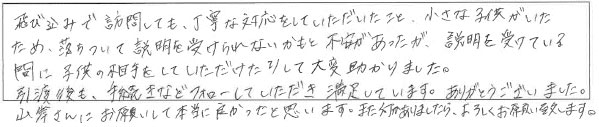 飛び込みで訪問しても、丁寧な対応をしていただいたこと、小さな子供がいた
ため、落ちついて説明を受けられないかもと不安があったが、説明を受けている
間に子供の相手をしていただけたりして大変助かりました。
引渡後も、手続きなどフォローしていただき満足しています。ありがとうございました。
山岸さんにお願いして本当に良かったと思います。また何かありましたら、よろしくお願い致します。